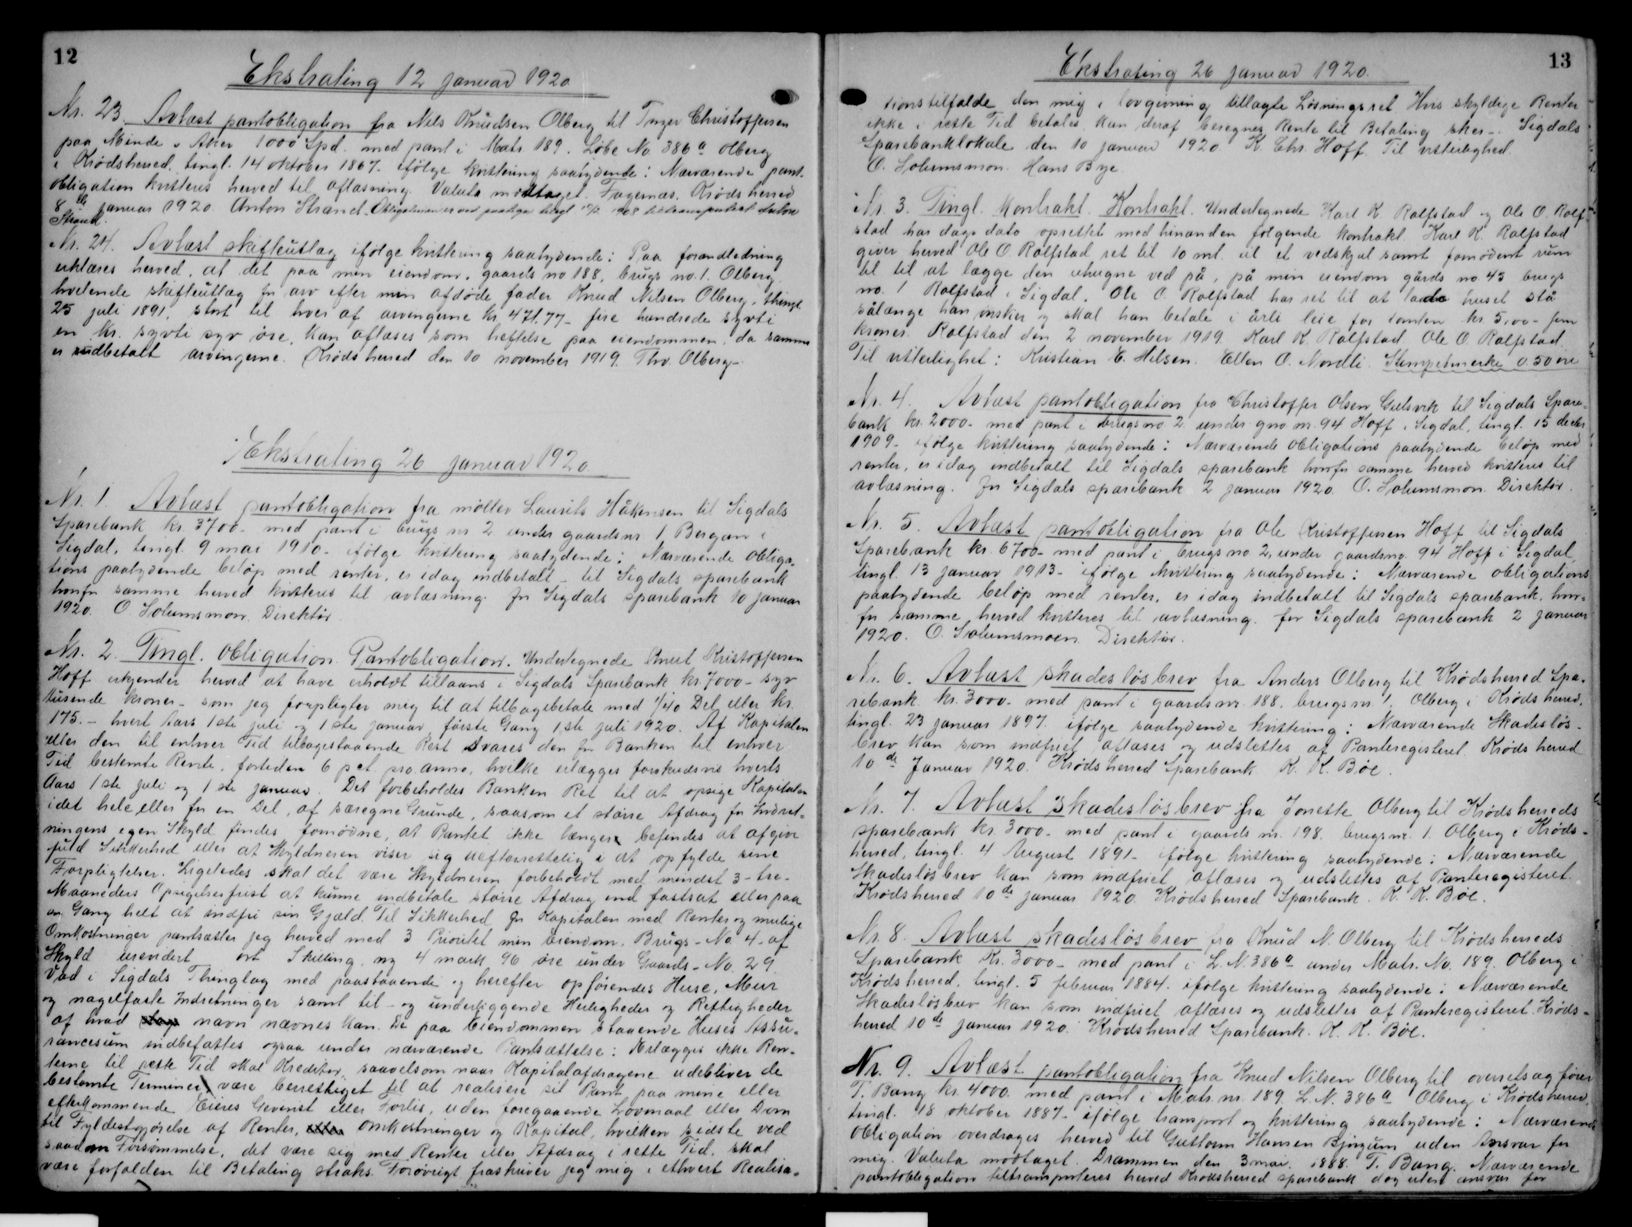 12
Ekstrating 12 januar 1920
Nr. 23. Avlæst pantobligation fra Nils Knudsen Olberg til Inger Christoffersen
paa Minde s Ahser 1000 Spd. med pant i Matr 189. Løbe No 386a Olberg
i Krødsherred, tingl. 14 oktober 1867. ifølge kvittering saalydende: Nærværende pant-
obligation kvitteres herved til aflæsning. Valuta mottaget. Fagernæs. Krødsherred
8de januar 1920. Anton Strand. Obligationen er ved paategn. tingl
Strand.
Nr. 24. Avlæst skifteutlæg ifølge kvittering saalydende: Paa foranledning
erklæres herved, at det paa min eiendom, gaards no 188, brugs no. 1. Olberg
hvilende skifteutlæg for arv efter min afdøde fader Knud Nilsen Olberg, thinglst
25 juli 1891, stort til hver af arvingerne kr. 471.77 - fire hundrede sytti
en kr. sytti syv øre, kan aflæses som heftelse paa eiendommen, da samme
er udbetalt arvingerne. Krødsherred den 10 november 1919. Thv. Olberg-
Ekstrating 26 januar 1920
Nr. 1. Avlæst pantobligation fra møller Laurits Håkensen til Sigdals
Sparebank kr. 3700- med pant i brugs nr 2 under gaardsnr 1 Bergan i
Sigdal, tingl. 9 mai 1910- ifølge kvittering saalydende: Nærværende obliga-
tions paalydende beløp med renter, er idag indbetalt - til Sigdals sparebank
hvorfor samme herved kvitteres til avlæsning. for Sigdals Sparebank 10 januar
1920. O Solumsmoen Direktør
Nr. 2. Tingl. obligation. Pantobligation. Undertegnede Knut Kristoffersen
Hoff erkjender herved at have erholdt tillaans i Sigdals Sparebank kr 7000- syv
tusende kroner - som jeg forpligter meg til at tilbagebetale med 1/40 Del eller kr.
175.- hvert Aars 1ste juli og 1ste januar første Gang 1ste juli 1920. Af Kapitalen
eller den til enhver Tid tilbagestaaende Rest svares den for Banken til enhver
Tid bestemte Rente, fortiden 6 pct pro anno, hvilke erlægges forskudsvis hverts
Aars 1ste juli og 1ste januar. Det forbeholdes Banken Ret til at opsige Kapitalen
i det hele eller for en Del, af særegne Grunde, saasom et større Afdrag for Indret-
ningens egen Skyld findes fornødne, at Pantet ikke længere befindes at afgive
fuld Sikkerhed eller at Skyldneren viser sig uefterrettelig i at opfylde sine
Forpligtelser. Ligeledes skal det være Skyldneren forbeholdt med mindst 3-tre-
Maaneders Opsigelsesfrist at kunne indbetale større Afdrag end fastsat eller paa
en Gang helt at indfri sin Gjæld. Til Sikkerhed for Kapitalen med Renter og mulige
Omkostninger pantsætter jeg herved med 3 Prioritet min Eiendom. Brugs-No 4- af
Skyld urevidert ort Skilling, ny 4 mark 96 øre under Gaards-No. 29
Vad i Sigdals Thinglag med paastaaende og herefter opførendes Huse, Mur
og nagelfaste Indretninger samt til- og underliggende Herligheder og Rettigheder
af hvad navn nævnes kan. De paa Eiendommen staaende Huses Assu-
rancesum indbefattes ogsaa under nærværende Pantsættelse: Erlægges ikke Ren-
terne til rette Tid skal Kreditor, saavelsom naar Kapitalafdragene udebliver de
bestemte Terminer, være berettiget til at realisere sit Pant paa mine eller
efterkommende Eieres Gevinst eller Forlis, uden foregaaende Lovmaal eller Dom
til Fyldestgjørelse af Renter, omkostninger og Kapital, hvilken sidste ved
saadan Forsømmelse, det være sig med Renter eller Afdrag i rette Tid, skal
være forfalden til Betaling straks. Forøvrigt fraskriver jeg mig i ethvert Realisa-
13
Ekstrating 26 januar 1920.
tionstilfælde den mig i lovgivning tillagte Løsningsret. Hvis skyldige Renter
ikke i rette Tid betales kan deraf beregnes Rente til Betaling sker-. Sigdals
Sparebanklokale den 10 januar 1920 K. Chr. Hoff. Til vitterlighed
O. Solumsmoen. Hans Bye
Nr. 3. Tingl. Kontrakt. Kontrakt. Undertegnede Karl K Ralfstad og Ole O. Ralf-
stad har dags dato oprettet med hinanden følgende kontrakt. Karl K. Ralfstad
giver herved Ole O Ralfstad ret til 10 ml. til et vedskjul samt fornødent rum
til til at lægge den uhugne ved på, på min eiendom gårds no 43 brugs
no. 1 Ralfstad i Sigdal. Ole O. Ralfstad har ret til at lade huset stå
sålænge han ønsker og skal han betale i årli leie for tomten kr 5,00- fem
kroner. Ralfstad den 2 november 1919. Karl K Ralfstad Ole O Ralfstad
Til vitterlighet: Kristian E. Nilsen. Ellen O. Nordli. Stempelmerke 0.50 øre
Nr. 4. Avlæst pantobligation fra Christoffer Olsen Gulsvik til Sigdals Spare-
bank kr. 2000- med pant i brugs no 2 under gno nr. 94 Hoff i Sigdal, tingl. 15 decbr
1909- ifølge kvittering saalydende: Nærværende obligations paalydende beløp med
renter, er idag indbetalt til Sigdals sparebank hvorfor samme herved kvitteres til
avlæsning. for Sigdals sparebank 2 januar 1920. O. Solumsmoen Direktør.
Nr. 5. Avlæst pantobligation fra Ole Kristoffersen Hoff til Sigdals
Sparebank kr. 6700- med pant i brugs no 2, under gaardsno. 94 Hoff i Sigdal
tingl. 13 januar 1913- ifølge kvittering saalydende: Nærværende obligations
paalydende beløp med renter, er idag indbetalt til Sigdals sparebank, hvor-
for samme herved kvitteres til avlæsning. for Sigdals sparebank 2 januar
1920. O. Solumsmoen Direktør.
Nr. 6. Avlæst skadesløsbrev fra Anders Olberg til Krødsherred Spa-
rebank kr. 3000- med pant i gaardsnr. 188. brugsnr. 1, Olberg i Krødsherred,
tingl. 23 januar 1897. ifølge saalydende kvittering: Nærværende Skadesløs-
brev kan som indfriet aflæses og udslettes af Panteregisteret Krødsherred
10de Januar 1920. Krødsherred Sparebank K. K. Bøe.
Nr. 7. Avlæst Skadesløsbrev fra Jonette Olberg til Krødsherreds
sparebank kr. 3000- med pant i gaards nr. 198. brugsnr. 1. Olberg i Krøds-
herred, tingl. 4 August 1891- ifølge kvittering saalydende: Nærværende
Skadesløsbrev kan som indfriet aflæses og udslettes af Panteregisteret.
Krødsherred 10de januar 1920. Krødsherred Sparebank. K. K. Bøe.
Nr. 8. Avlæst skadesløsbrev fra Knud N. Olberg til Krødsherreds
Sparebank Kr. 3000- med pant i L.N. 386a under Matr. No. 189. Olberg i
Krødsherred, tingl. 5 februar 1884. ifølge kvittering saalydende: Nærværende
Skadesløsbrev kan som indfriet aflæses og udslettes af Panteregisteret. Krøds-
herred 10de januar 1920. Krødsherred Sparebank. K. K. Bøe.
Nr. 9. Avlæst pantobligation fra Knud Nilsen Olberg til overretsagfører
T. Bang kr. 4000. med pant i Matr. nr. 189. L.N. 386a Olberg i Krødsherred,
tingl. 18 oktober 1887- ifølge transport og kvittering saalydende: Nærværende
Obligation overdrages herved til Guttorm Hansen Bjøgum uden Ansvar for
mig. Valuta modtaget. Drammen den 3 mai. 1888. T. Bang. Nærværende
pantobligation tiltransporteres herved Krødsherred sparebank dog uten ansvar for